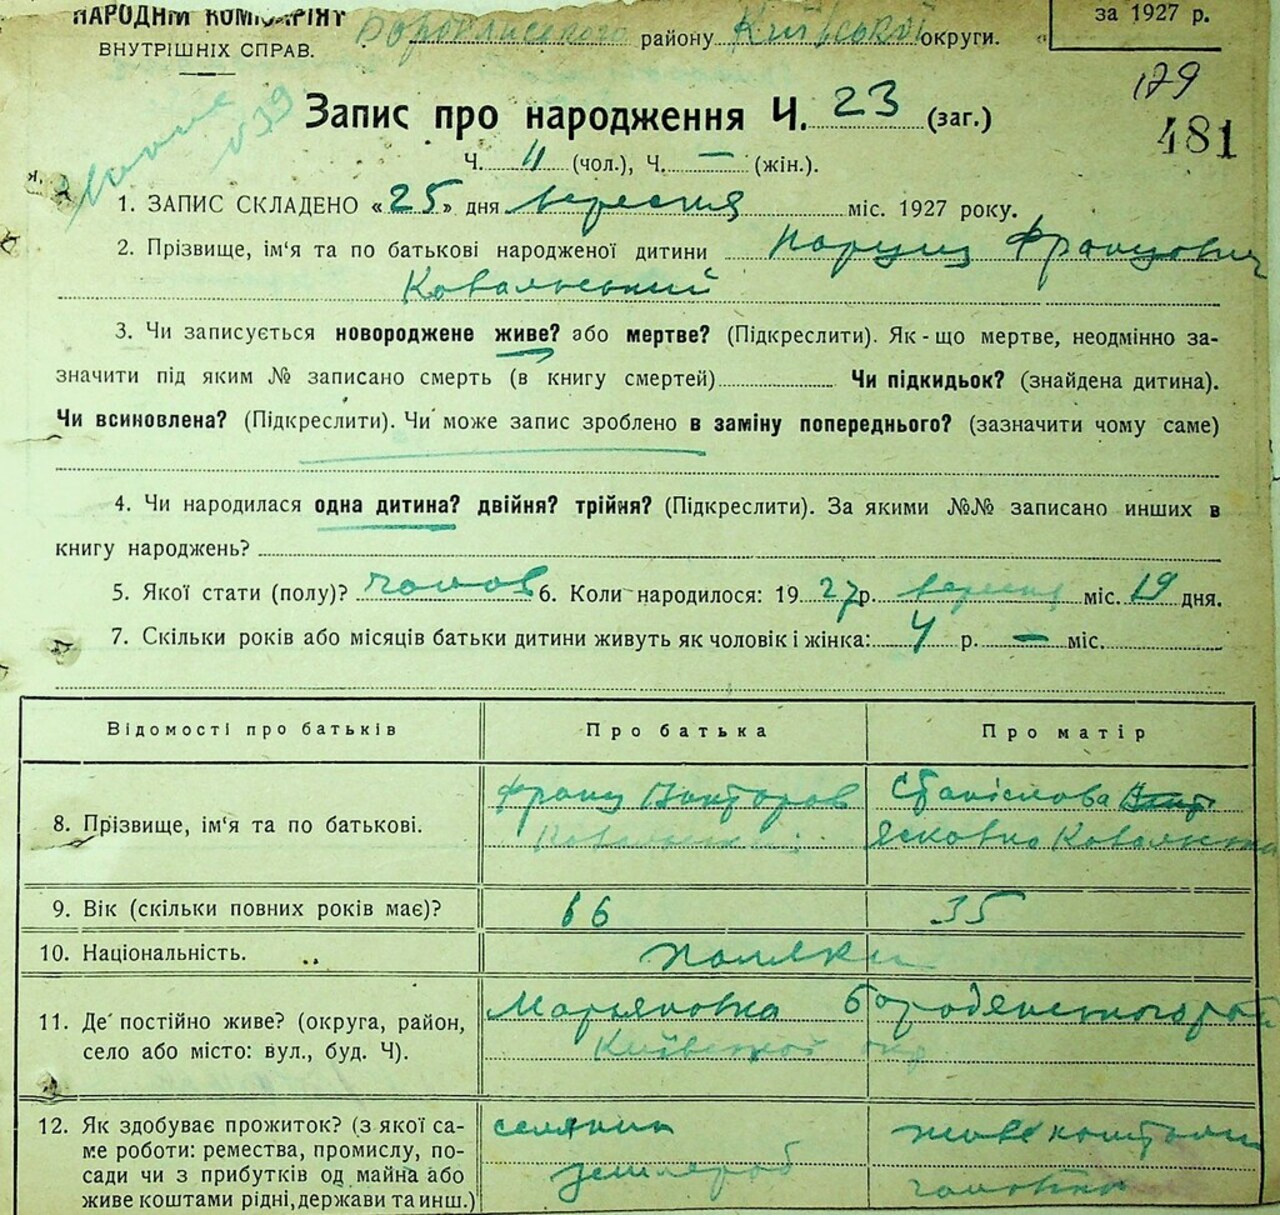 НАРОДНІЙ КОМІСАРІЯТ
ВНУТРІШНІХ СПРАВ.
району Київської округи.
за 1927 р.
179
481
Запис про народження Ч. 23 (заг.)
Ч. 11 (чол.), Ч. — (жін.).
1. ЗАПИС СКЛАДЕНО «25» дня вересня міс. 1927 року.
2. Прізвище, ім‘я та по батькові народженої дитини Нарциз Францович
Ковальський
3. Чи записується новороджене живе? або мертве? (Підкреслити). Як-що мертве, неодмінно за-
значити під яким № записано смерть (в книгу смертей) Чи підкидьок? (знайдена дитина).
Чи всиновлена? (Підкреслити). Чи може запис зроблено в заміну попереднього? (зазначити чому саме)
4. Чи народилася одна дитина? двійня? трійня? (Підкреслити). За якими №№ записано инших в
книгу народжень?
5. Якої стати (полу)? чолов 6. Коли народилося: 1927р. вересня міс. 19 дня.
7. Скільки років або місяців батьки дитини живуть як чоловік і жінка: 4 р. — міс.
Відомості про батьків Про батька Про матір
8. Прізвище, ім‘я та по батькові. Франц Вікторов Станіслова
Ковальський Ковальська
9. Вік (скільки повних років має)? 66 35
10. Національність. поляки
11. Де постійно живе? (округа, район, Марьяновка Бородянського рай
село або місто: вул., буд. Ч). Київської окр
12. Як здобуває прожиток? (з якої са- селянин живе коштами
ме роботи: ремества, промислу, по-
сади чи з прибутків од майна або землероб
живе коштами рідні, держави та инш.) чоловіка